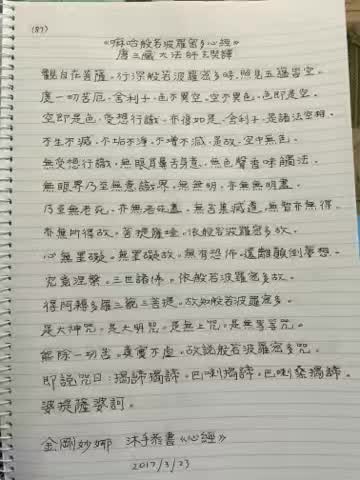 (87)
《嘛哈般若波羅蜜多心經》
唐三藏大法師玄奘譯
觀自在菩薩。行深般若波羅蜜多時。照見五蘊皆空。
度一切苦厄。舍利子。色不異空。空不異色。色即是空。
空即是色。受想行識。亦復如是。舍利子。是諸法空相。
不生不滅。不垢不淨。不增不減。是故。空中無色。
無受想行識。無眼耳鼻舌身意。無色聲香味觸法。
無眼界乃至無意識界。無無明。亦無無明盡。
乃至無老死。亦無老死盡。無苦集滅道。無智亦無得。
亦無所得故。菩提薩埵。依般若波羅蜜多故。
心無罣礙。無罣礙故。無有恐怖。遠離顛倒夢想。
究竟涅槃。三世諸佛。依般若波羅蜜多故。
得阿耨多羅三藐三菩提。故知般若波羅蜜多。
是大神咒。是大明咒。是無上咒。是無等等咒。
能除一切苦。真實不虛。故說般若波羅蜜多咒。
即說咒曰：揭諦揭諦。巴喇揭諦。巴喇僧揭諦。
婆提薩婆訶。
金剛妙娜 沐手恭書《心經》
2017/3/23